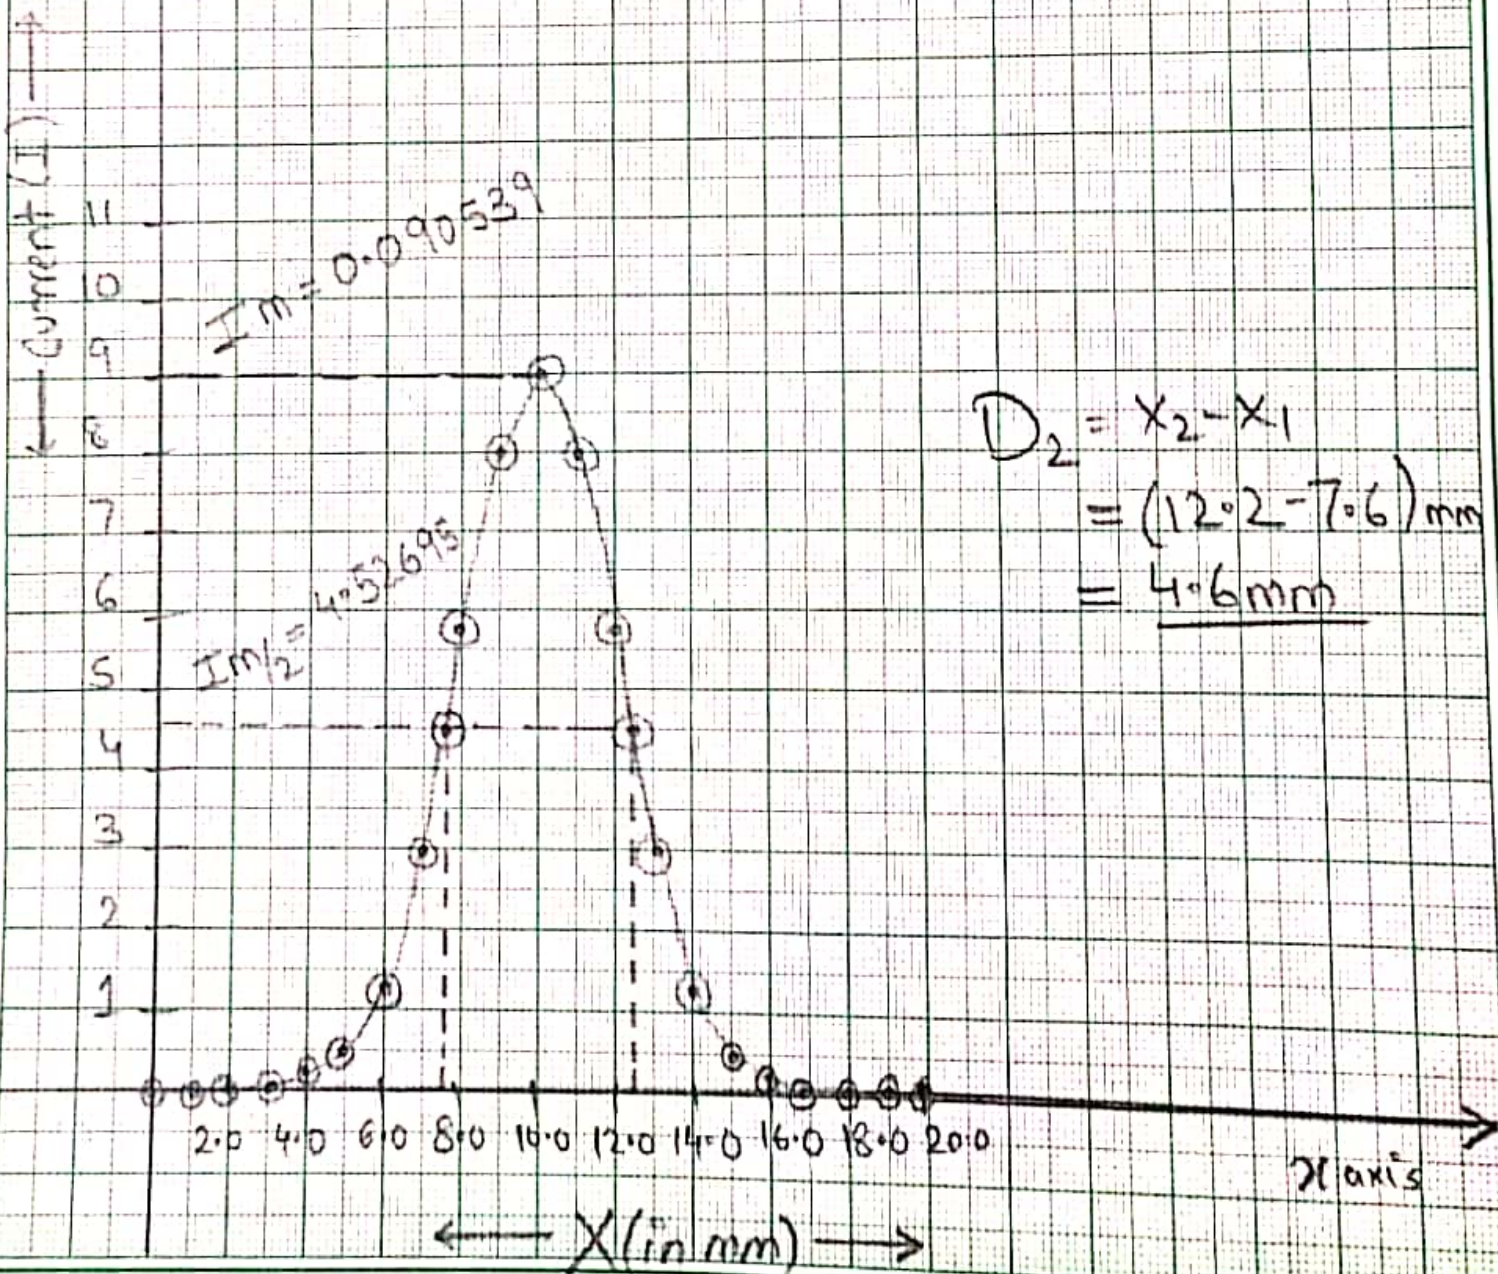 ← Current (I) →
Im = 0.090539
11
10
9
8
7
6
5
4
3
2
1
Im/2 = 4.52695
D2 = X2-X1
= (12.2-7.6) mm
= 4.6mm
2.0 4.0 6.0 8.0 10.0 12.0 14.0 16.0 18.0 20.0
x axis
← X (in mm) →